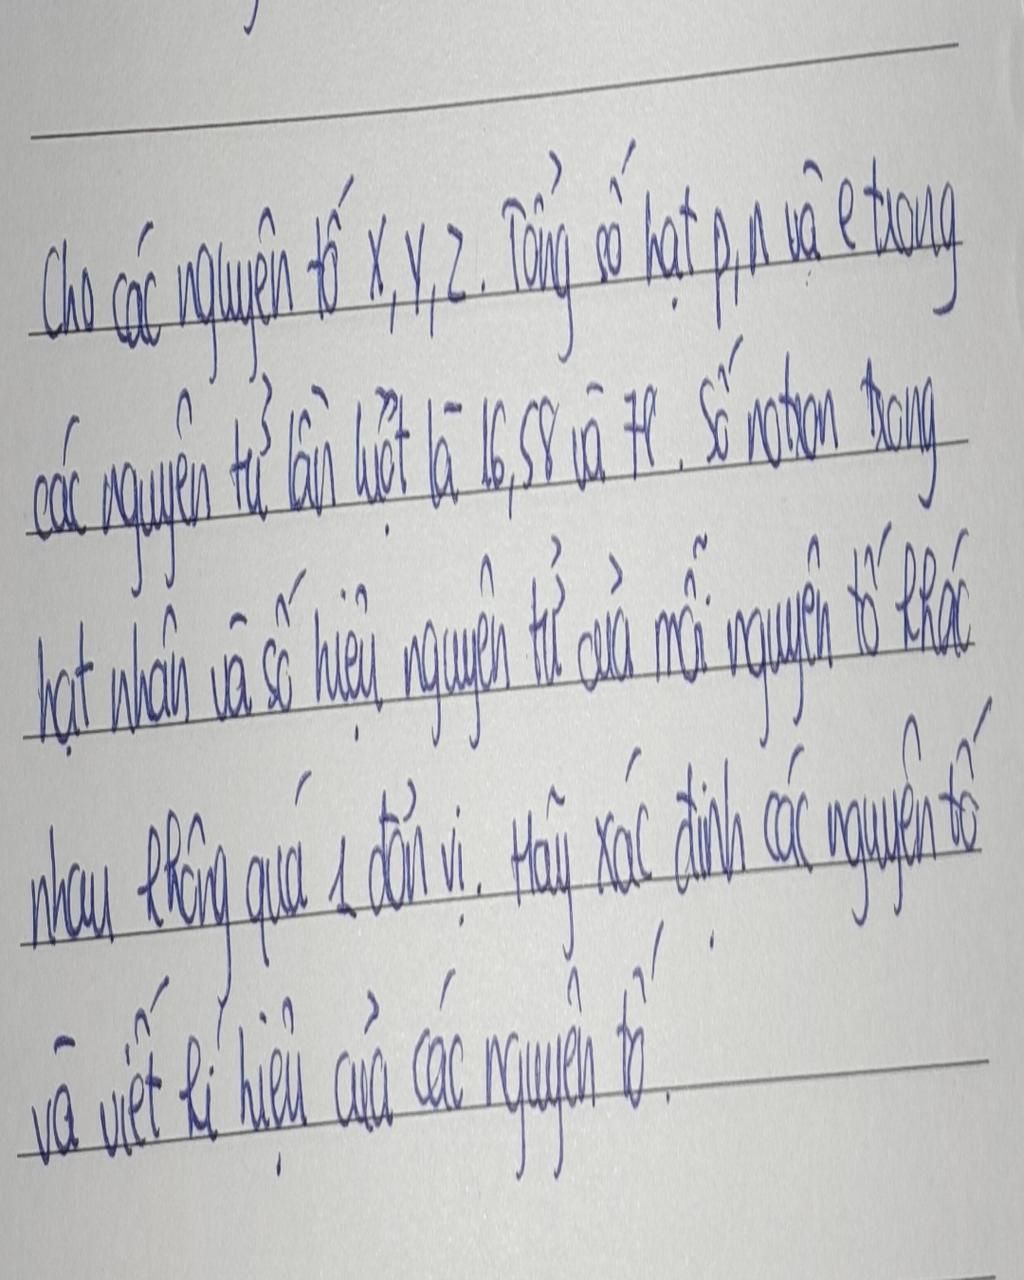 Cho các nguyên tố X, Y, Z. Tổng số hạt p, n và e trong
các nguyên tử lần lượt là 16, 58 và 78. Số notron trong
hạt nhân và số hiệu nguyên tử của mỗi nguyên tố khác
nhau không quá 1 đơn vị. Hãy xác định các nguyên tố
và viết kí hiệu của các nguyên tố.